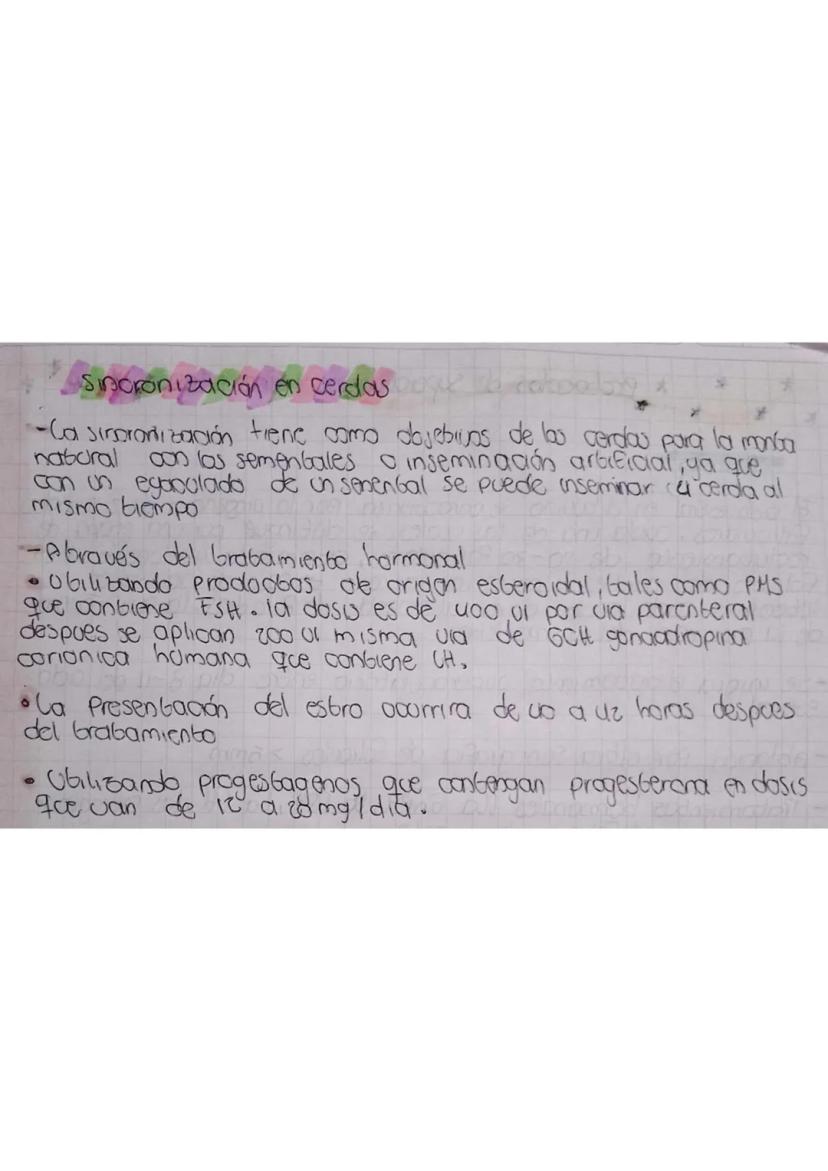 Sincronización en cerdas
-La sincronización tiene como objetivos de las cerdas para la monta
natural con los sementales o inseminación artificial, ya que
con un eyaculado de un semental se puede inseminar 4 cerda al
mismo tiempo
-Através del tratamiento hormonal
• Utilizando productos de origen esteroidal, tales como PMS
que contiene FSH. la dosis es de 400 UI por via parenteral
despues se aplican 200 UI misma via de GCH gonadropina
corionica humana que contiene LH.
• La Presentación del estro ocurrira de 40 a 42 horas despues
del tratamiento
• Utilizando progestagenos que contengan progesterona en dosis
que van de 12 a 20 mg/dia.